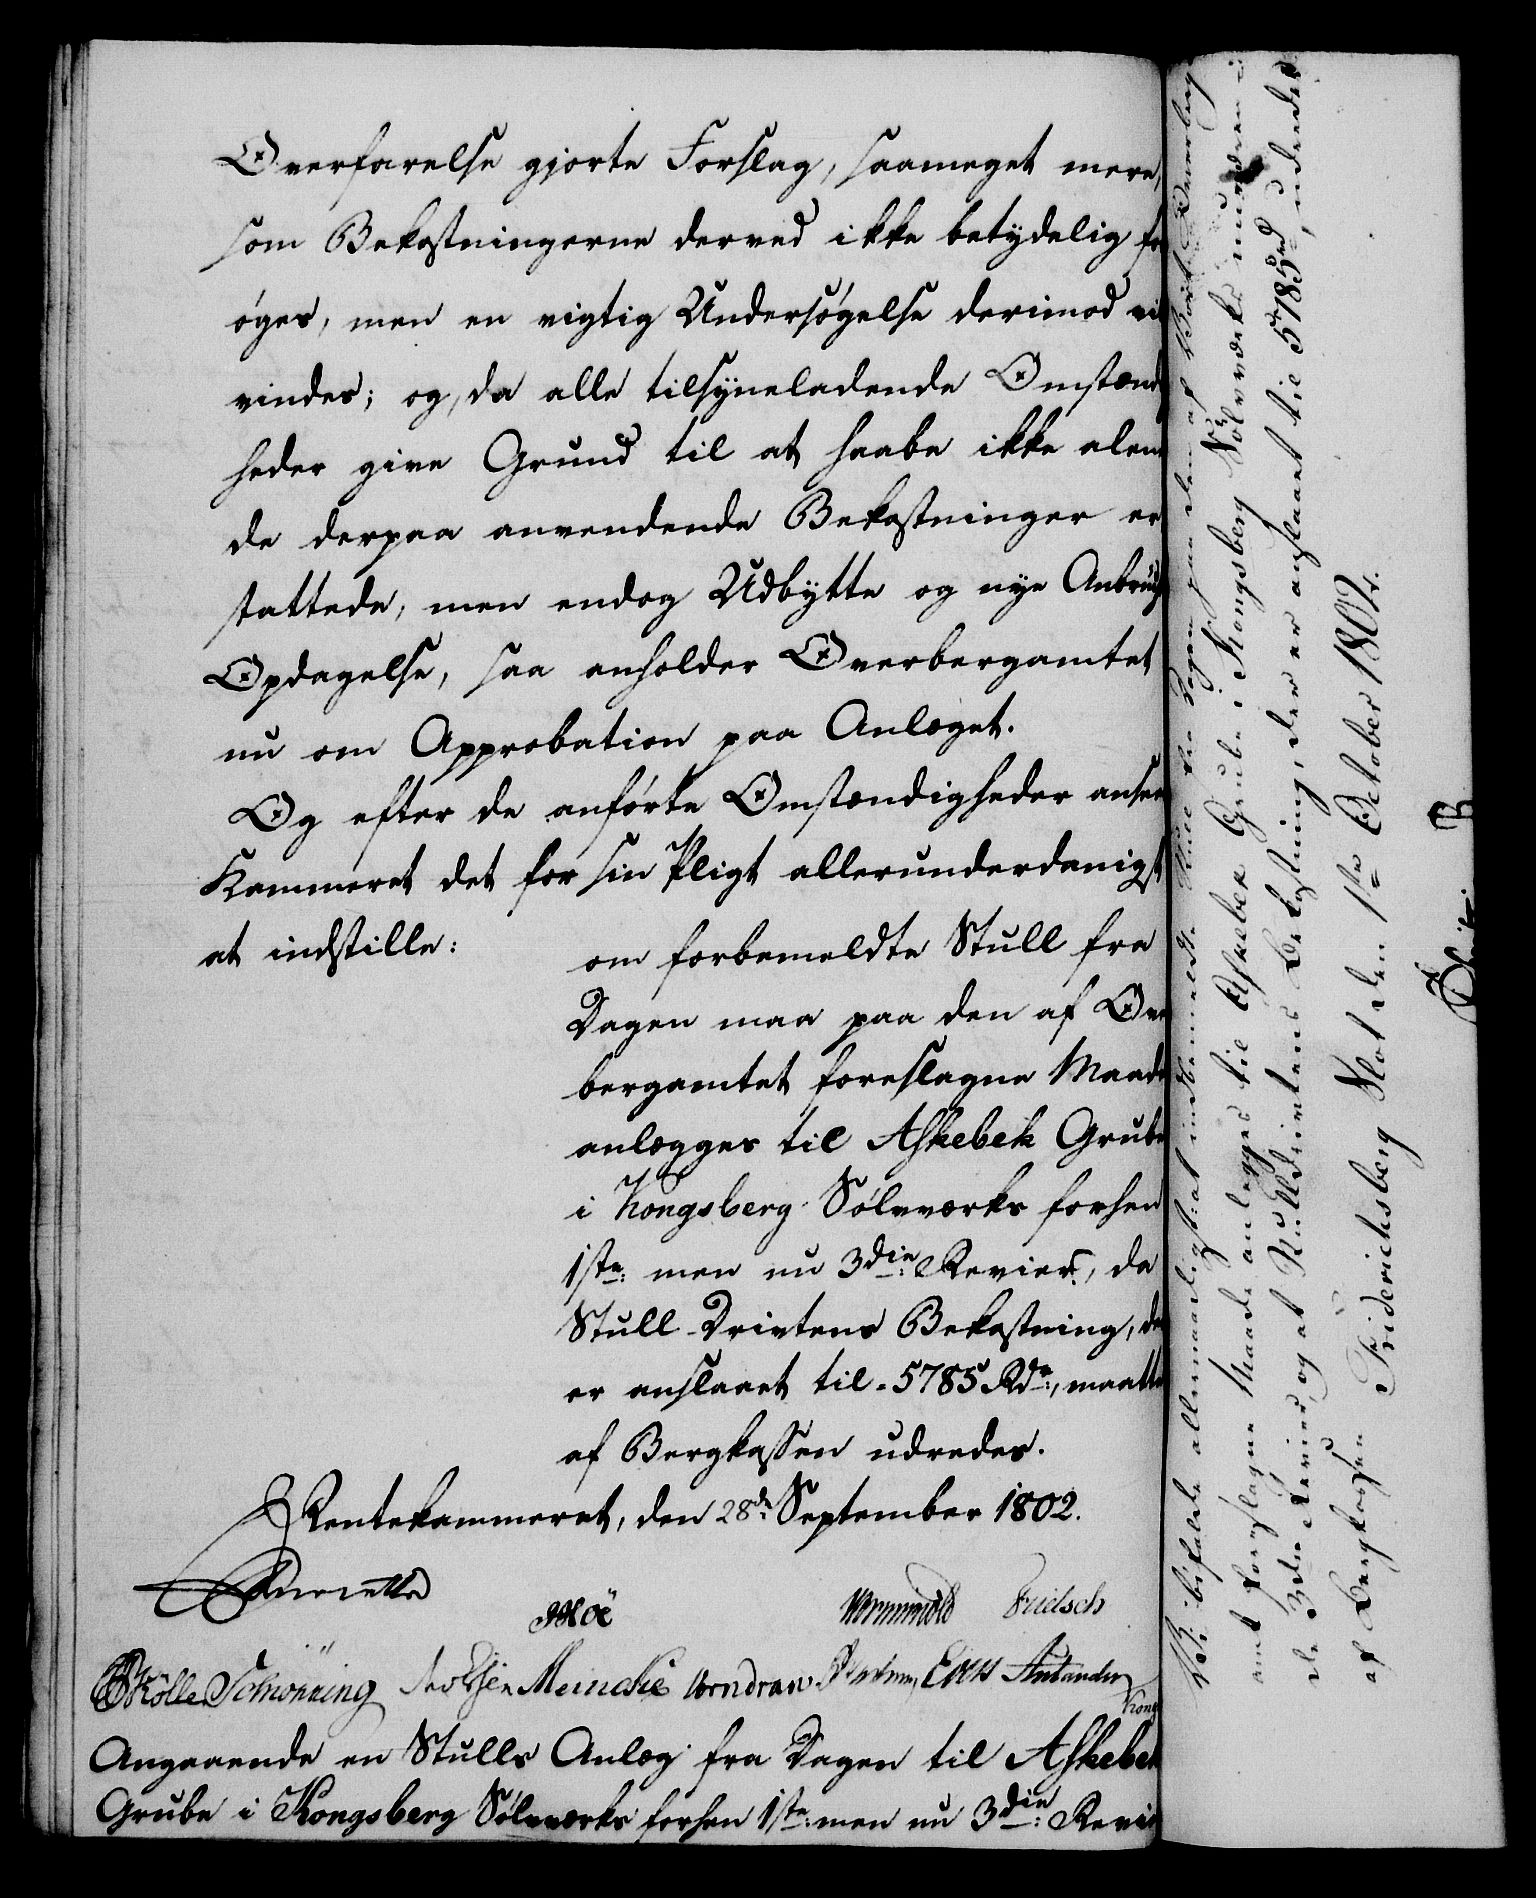 Overfarelse gjorte Forslag, saameget mere,
som Bekostningerne derved ikke betydelig for
öges, men en vigtig Undersögelse derimod vil
vindes; og, da alle tilsyneladende Omstænd
heder give Grund til at haabe ikke alene
de derpaa anvendende Bekostninger er
stattede, men endog Udbytte og nye Anbruds
Opdagelse, saa anholder Overbergamtet
nu om Approbation paa Anlæget.
Og efter de anförte Omstændigheder anseer
Kammeret det for sin Pligt allerunderdanigst
at indstille:
om forbemeldte Stull fra
Dagen maa paa den af Over
bergamtet foreslagne Maade
anlægges til Askebek Grube
i Kongsberg Sölvværks forhen
1ste men nu 3die Revier, da
Stull Driftens Bekostning, der
er anslaaet til 5785 Rdr, maatte
af Bergkassen udredes.
Rentekammeret, den 28de September 1802.
Moe Wormskiold Fridsch
Kölle Schönning Meincke Wendran Antander
Kong
Angaaende en Stulls Anlæg fra Dagen til Askebek
Grube i Kongsberg Sölvværks forhen 1ste men nu 3die Revier
Vi bifalde allernaadigst: at indbemeldte Stull fra Dagen paa den af Vort Overberg
amt foreslagne Maade anlægges til Askebek Grube i Kongsberg Sölvværks nuværen
de 3die Revier, og at Stulldriftens Bekostning, der er anslaaet til 5785 rd, udredes
af Bergkassen
Friderichsberg Slot den 1ste October 1802.